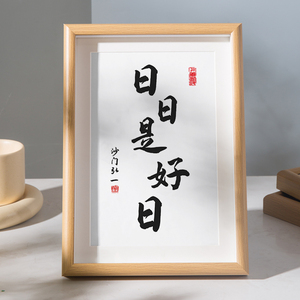 日日是好日
沙门弘一